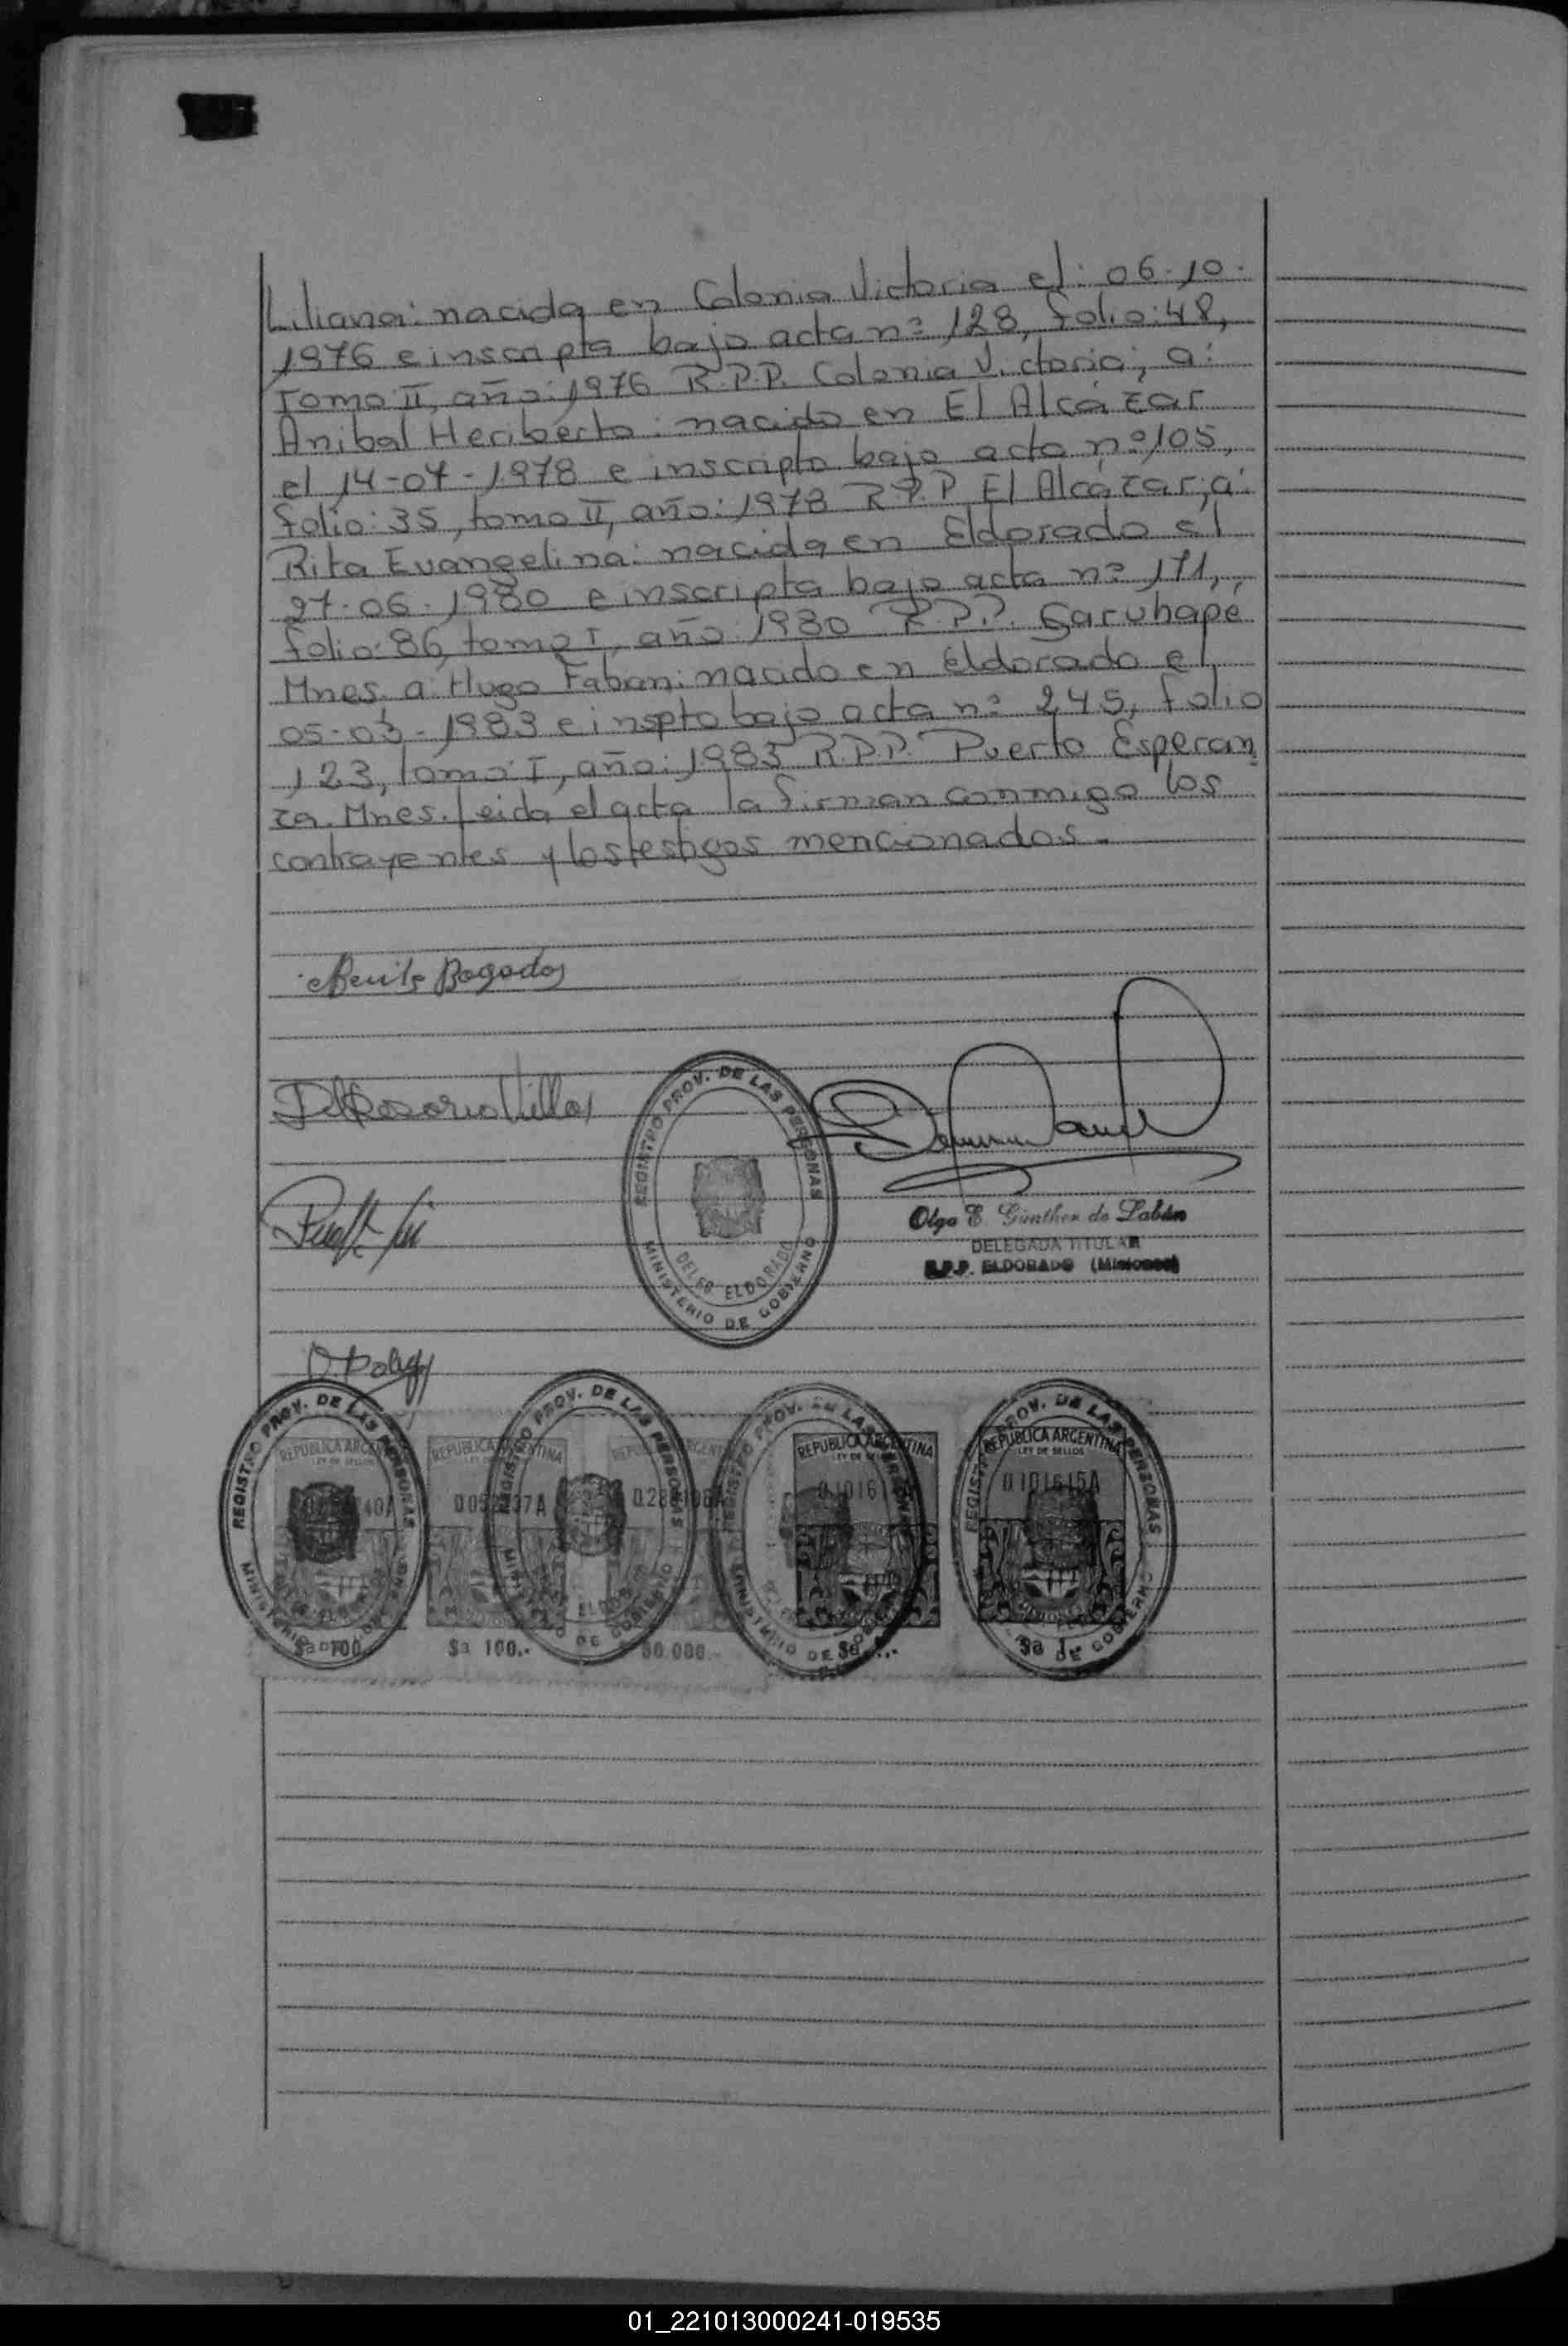 Liliana: nacida en Colonia Victoria el: 06-10-
1976 e inscripta bajo acta nº 128, folio: 48,
Tomo II, año: 1976 R.P.P. Colonia Victoria; a:
Anibal Heriberto: nacido en El Alcázar
el 14-04-1978 e inscripto bajo acta nº 105,
folio: 35, tomo II, año: 1978 R.P.P El Alcázar; a:
Rita Evangelina: nacida en Eldorado el
27-06-1980 e inscripta bajo acta nº 171,
folio: 86, tomo I, año: 1980 R.P.P. Garuhapé
Mnes. a: Hugo Fabian: nacido en Eldorado el
05-03-1983 e inspto bajo acta nº 245, folio
123, tomo: I, año: 1983 R.P.P. Puerto Esperan
za. Mnes. Leida el acta la firman conmigo los
contrayentes y los testigos mencionados.-
Bogado
Del Rosario Villa
REGISTRO PROV. DE LAS PERSONAS
DELEG. ELDORADO
MINISTERIO DE GOBIERNO
Olga E. Günther de Labán
DELEGADA TITULAR
R.P.P. ELDORADO (Misiones)
REGISTRO PROV. DE LAS PERSONAS
MINISTERIO DE GOBIERNO
REPUBLICA ARGENTINA
LEY DE SELLOS
$a 100.-
REPUBLICA ARGENTINA
$a 100.-
REGISTRO PROV. DE LAS PERSONAS
MINISTERIO DE GOBIERNO
50.000.-
REGISTRO PROV. DE LAS PERSONAS
MINISTERIO DE GOBIERNO
REPUBLICA ARGENTINA
LEY DE SELLOS
REGISTRO PROV. DE LAS PERSONAS
REPUBLICA ARGENTINA
LEY DE SELLOS
0101615A
$a 1.-
DE GOBIERNO
01_221013000241-019535